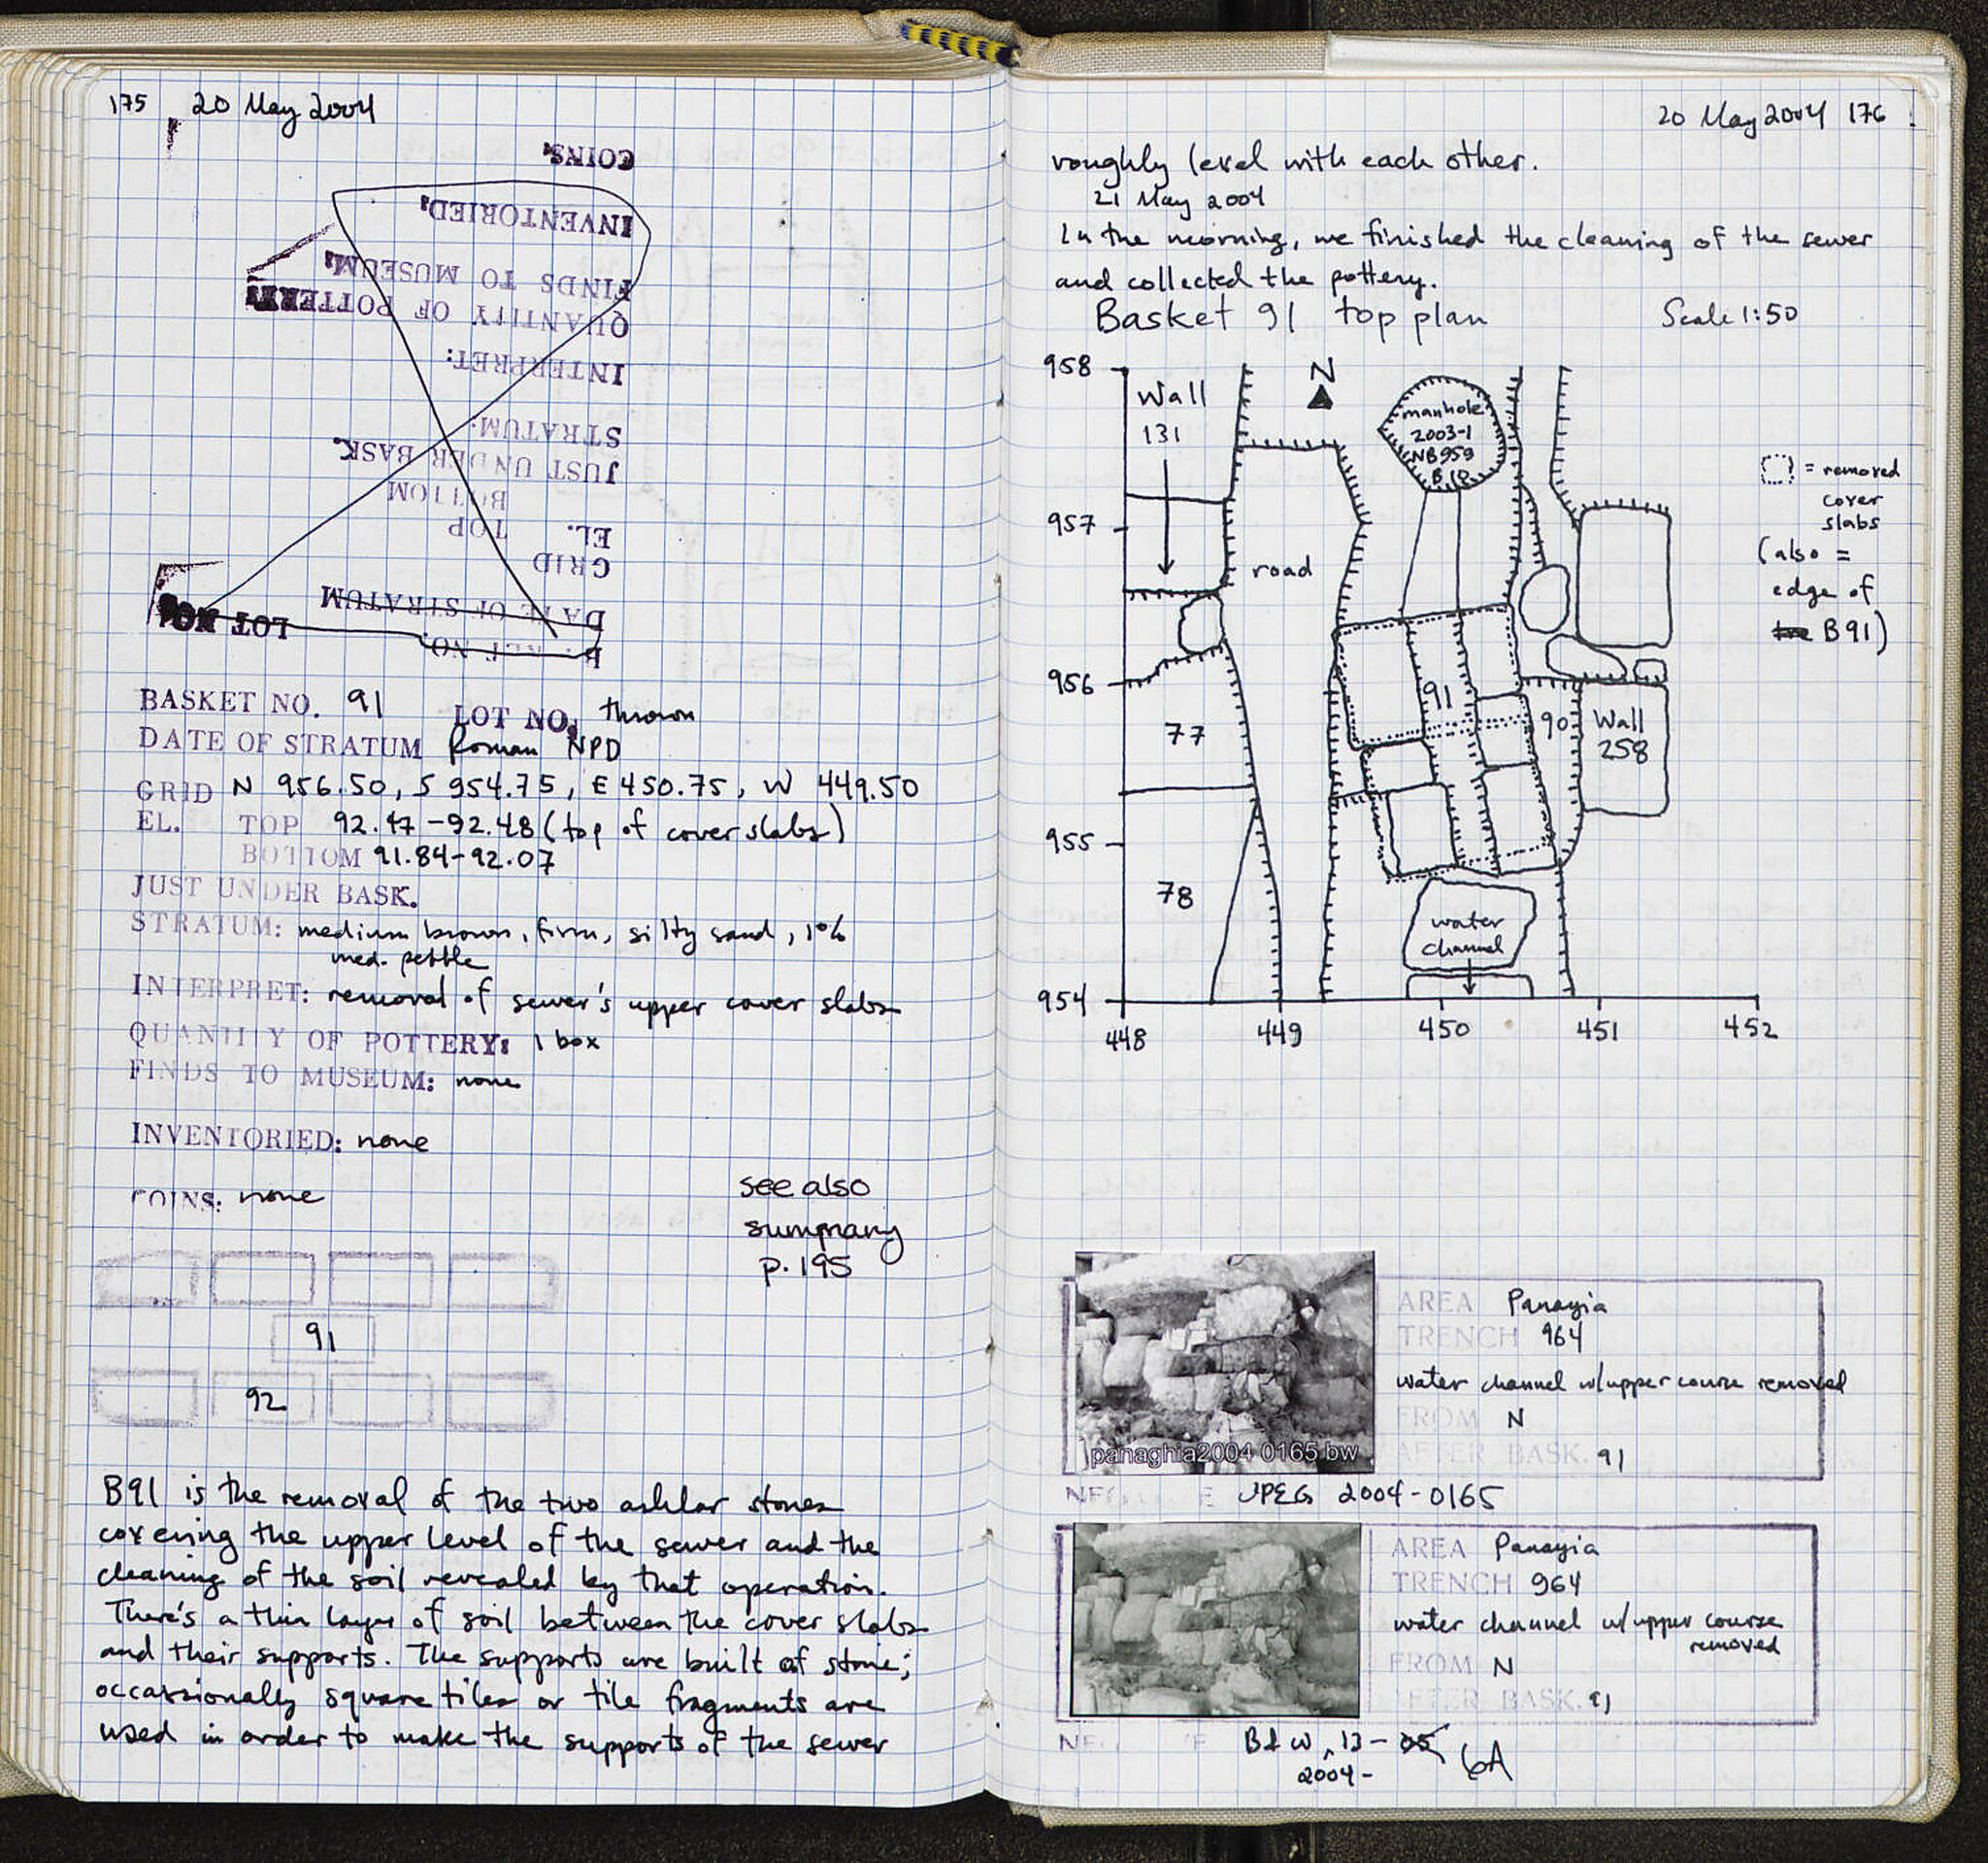 175 20 May 2004
COINS:
INVENTORIED:
FINDS TO MUSEUM:
QUANTITY OF POTTERY:
INTERPRET:
STRATUM:
JUST UNDER BASK.
BOTTOM
EL. TOP
GRID
DATE OF STRATUM
LOT NO.
BASKET NO. 91 LOT NO: thrown
DATE OF STRATUM Roman NPD
GRID N 956.50, S 954.75, E 450.75, W 449.50
EL. TOP 92.47-92.48 (top of cover slabs)
BOTTOM 91.84-92.07
JUST UNDER BASK.
STRATUM: medium brown, firm, silty sand, 1%
med. pebble
INTERPRET: removal of sewer's upper cover slabs
QUANTITY OF POTTERY: 1 box
FINDS TO MUSEUM: none
INVENTORIED: none
COINS: none
see also
summary
p. 195
91
92
B91 is the removal of the two ashlar stones
covering the upper level of the sewer and the
cleaning of the soil revealed by that operation.
There's a thin layer of soil between the cover slabs
and their supports. The supports are built of stone;
occassionally square tiles or tile fragments are
used in order to make the supports of the sewer
20 May 2004 176
roughly level with each other.
21 May 2004
In the morning, we finished the cleaning of the sewer
and collected the pottery.
Basket 91 top plan Scale 1:50
958
N
Wall
131
manhole
2003-1
NB959
B 10
= removed
cover
slabs
(also =
edge of
the B91)
957
road
956
91
90
Wall
258
77
955
78
water
channel
954
448 449 450 451 452
AREA Panayia
TRENCH 964
water channel w/upper course removed
FROM N
AFTER BASK. 91
panaghia2004 0165 bw
JPEG 2004-0165
AREA Panayia
TRENCH 964
water channel w/upper course
removed
FROM N
AFTER BASK. 91
B&W, 13-05 6A
2004-